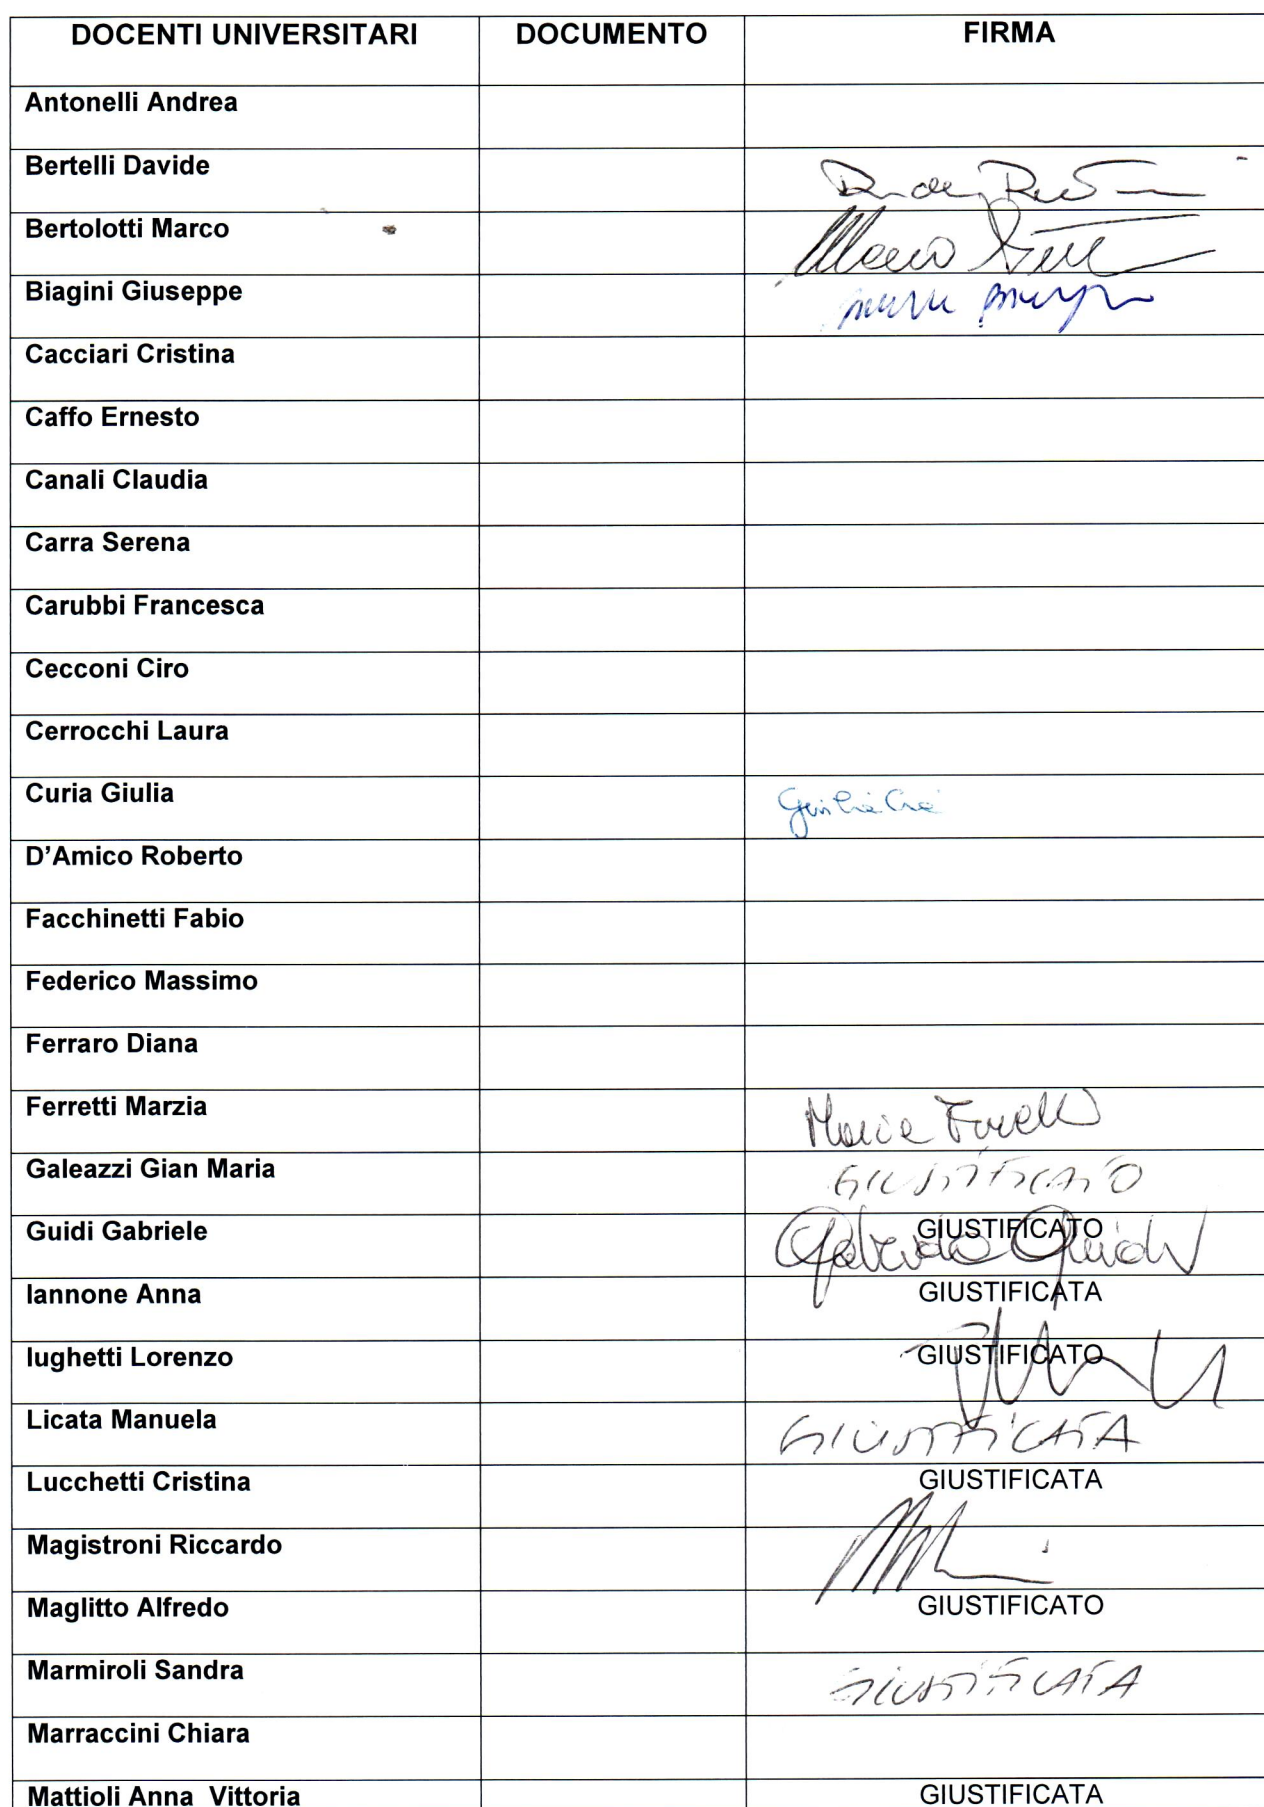 DOCENTI UNIVERSITARI DOCUMENTO FIRMA
Antonelli Andrea
Bertelli Davide
Bertolotti Marco Marco
Biagini Giuseppe
Cacciari Cristina
Caffo Ernesto
Canali Claudia
Carra Serena
Carubbi Francesca
Cecconi Ciro
Cerrocchi Laura
Curia Giulia Giulia
D'Amico Roberto
Facchinetti Fabio
Federico Massimo
Ferraro Diana
Ferretti Marzia
Galeazzi Gian Maria GIUSTIFICATO
Guidi Gabriele GIUSTIFICATO Gabriele Guidi
Iannone Anna GIUSTIFICATA
Iughetti Lorenzo GIUSTIFICATO
Licata Manuela GIUSTIFICATA
Lucchetti Cristina GIUSTIFICATA
Magistroni Riccardo
Maglitto Alfredo GIUSTIFICATO
Marmiroli Sandra GIUSTIFICATA
Marraccini Chiara
Mattioli Anna Vittoria GIUSTIFICATA